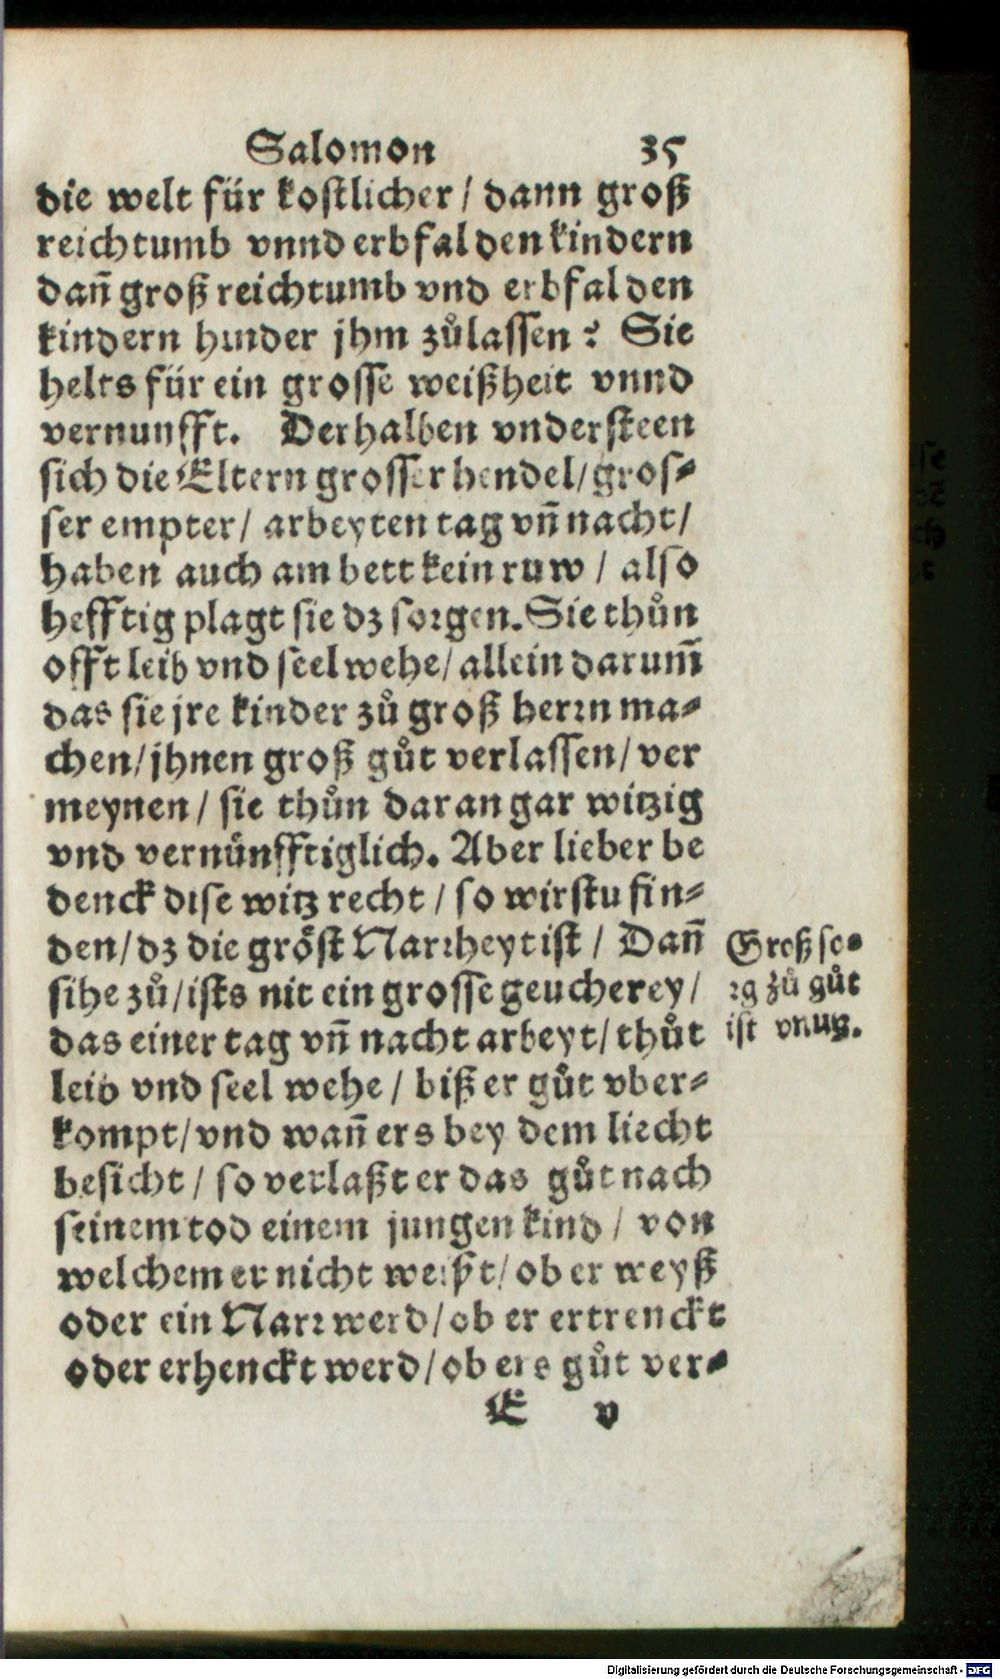 Salomon 35
die welt für kostlicher / dann groß
reichtumb vnnd erbfal den kindern
dañ groß reichtumb vnd erbfal den
kindern hinder jhm zůlassen? Sie
helts für ein grosse weißheit vnnd
vernunfft. Derhalben vndersteen
sich die Eltern grosser hendel / gros⸗
ser empter / arbeyten tag vñ nacht /
haben auch am bett kein ruw / also
hefftig plagt sie dz sorgen. Sie thůn
offt leib vnd seel wehe / allein darum̃
das sie jre kinder zů groß herrn ma⸗
chen / jhnen groß gůt verlassen / ver
meynen / sie thůn daran gar witzig
vnd vernünfftiglich. Aber lieber be
denck dise witz recht / so wirstu fin⸗
den / dz die gröst Narrheyt ist / Dañ
sihe zů / ists nit ein grosse geucherey /
das einer tag vñ nacht arbeyt / thůt
leib vnd seel wehe / biß er gůt vber⸗
kompt / vnd wañ ers bey dem liecht
besicht / so verlaßt er das gůt nach
seinem tod einem jungen kind / von
welchem er nicht weißt / ob er weyß
oder ein Narr werd / ob er ertrenckt
oder erhenckt werd / ob ers gůt ver⸗
E v
Groß so⸗
rg zů gůt
ist vnutz.
Digitalisierung gefördert durch die Deutsche Forschungsgemeinschaft - DFG